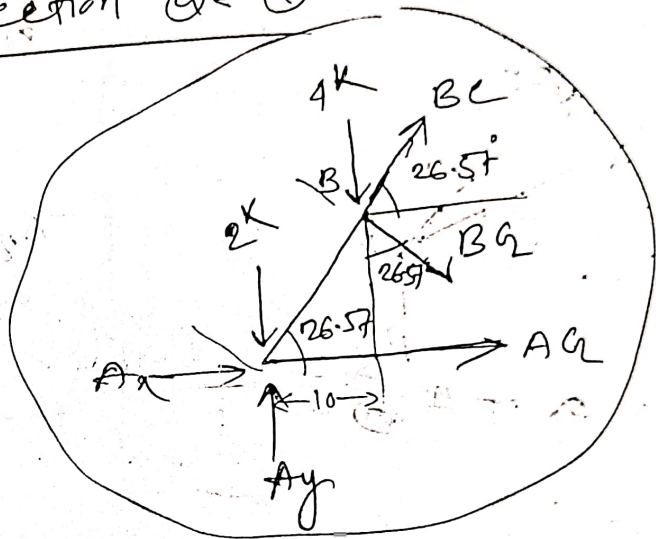 4K
BC
26.57°
B
2K
BG
26.57
26.57
AG
Ax
10
Ay